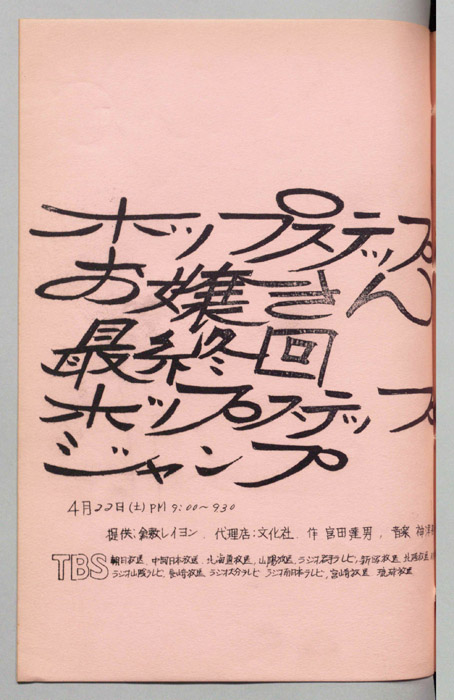 ホップステップ
お嬢さん
最終回
ホップステップ
ジャンプ
4月22日(土)PM 9:00〜930
提供:倉敷レイヨン . 代理店:文化社 . 作 宮田達男 , 音楽 神津
TBS 朝日放送 中部日本放送 北海道放送, 山陽放送, ラジオ岩手テレビ, 新潟放送 北陸放送
ラジオ山陰テレビ 長崎放送 ラジオ大分テレビ ラジオ南日本テレビ, 宮崎放送 琉球放送